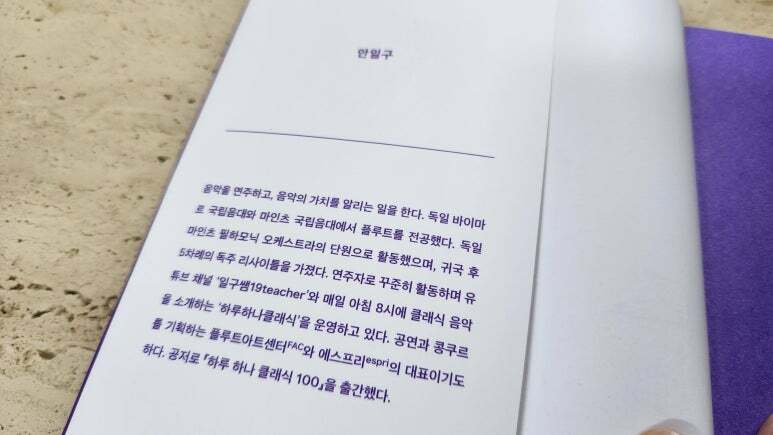 안일구
음악을 연주하고, 음악의 가치를 알리는 일을 한다. 독일 바이마
르 국립음대와 마인츠 국립음대에서 플루트를 전공했다. 독일
마인츠 필하모닉 오케스트라의 단원으로 활동했으며, 귀국 후
5차례의 독주 리사이틀을 가졌다. 연주자로 꾸준히 활동하며 유
튜브 채널 ‘일구쌤19teacher’와 매일 아침 8시에 클래식 음악
을 소개하는 ‘하루하나클래식’을 운영하고 있다. 공연과 콩쿠르
를 기획하는 플루트아트센터FAC와 에스프리espri의 대표이기도
하다. 공저로 『하루 하나 클래식 100』을 출간했다.